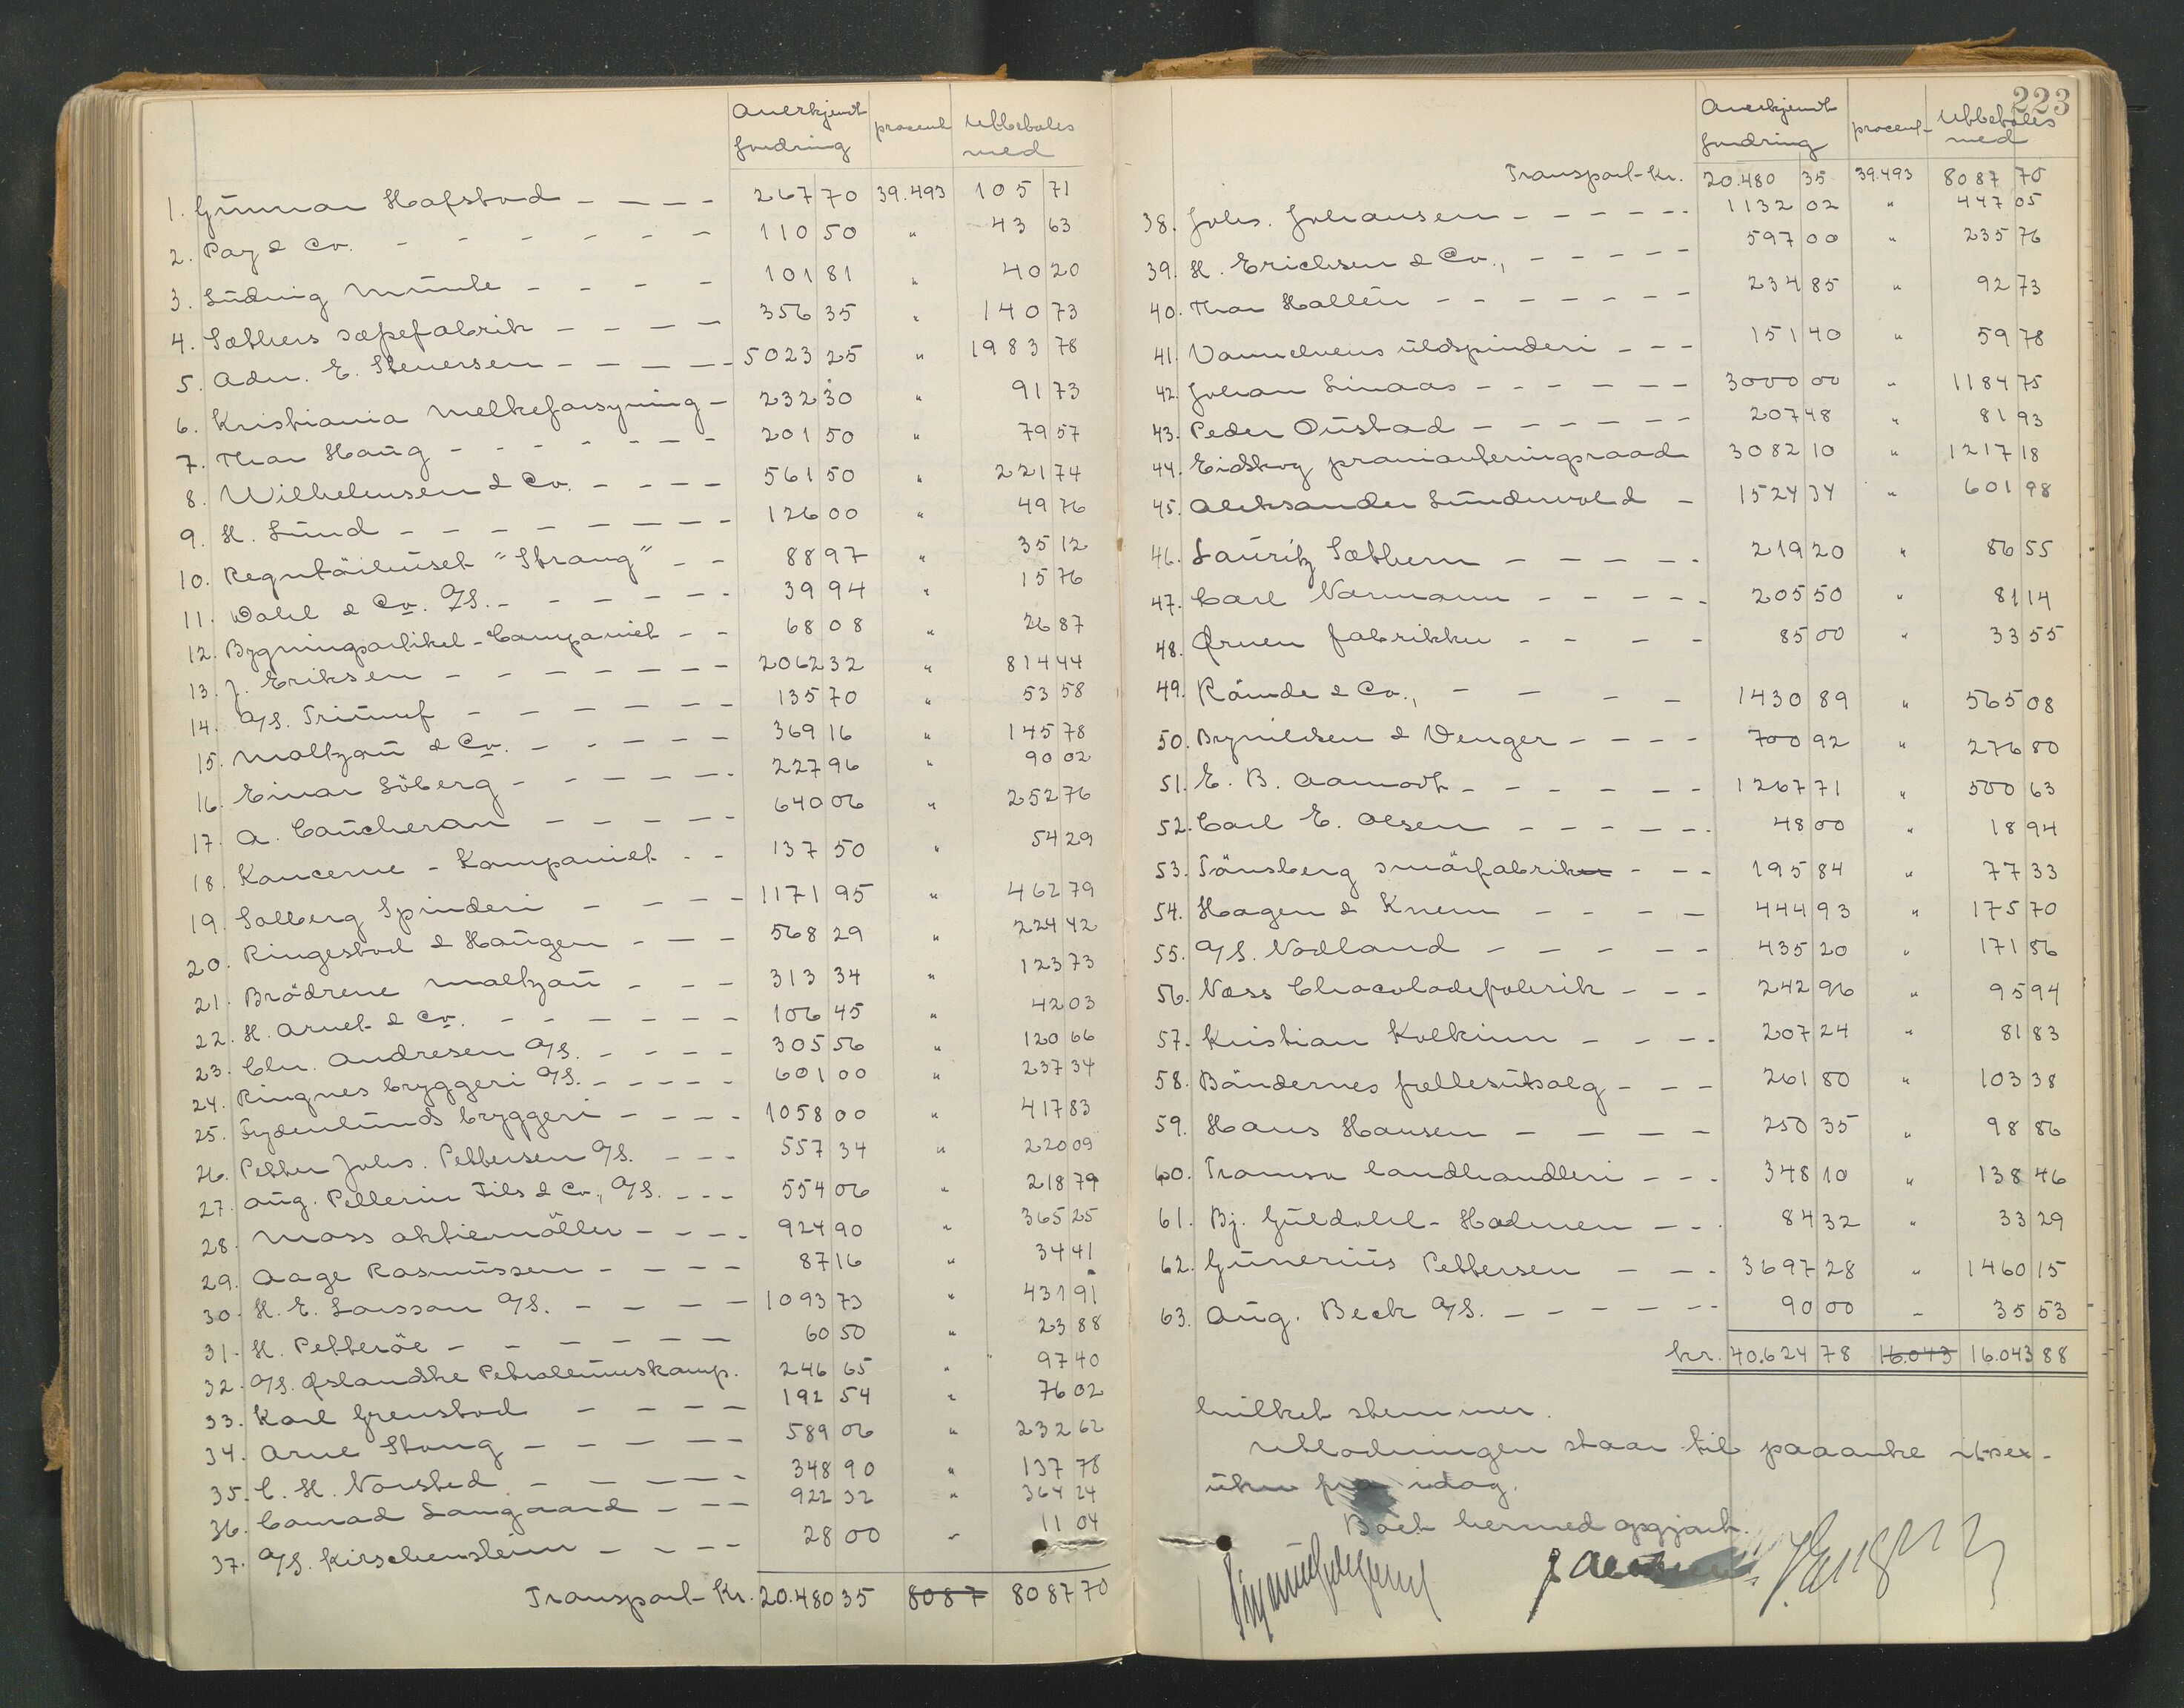 Anerkjendt procent Utbetales
fordring med
1. Gunnar Hafstad - - - - 267 70 39.493 105 71
2. Pay & Co. - - - - - - - 110 50 " 43 63
3. Ludvig Munte - - - - 101 81 " 40 20
4. Sæthers sæpefabrik - - - - 356 35 " 140 73
5. Adr. E. Stenersen - - - - - 5023 25 " 1983 78
6. Kristiania Melkeforsyning - 232 30 " 91 73
7. Thor Haug - - - - - - - 201 50 " 79 57
8. Wilhelmsen & Co. - - - - 561 50 " 221 74
9. H. Lund - - - - - - - - 126 00 " 49 76
10. "Strang" - - 88 97 " 35 12
11. Dahl & Co. A/S. - - - - - - 39 94 " 15 76
12. Bygningsartikel-Compagniet - - 68 08 " 26 87
13. J. Eriksen - - - - - - - 2062 32 " 814 44
14. A/S. Triumf - - - - - - 135 70 " 53 58
15. Maltzau & Co. - - - - - 369 16 " 145 78
16. Einar Söberg - - - - - - 227 96 " 90 02
17. A. Caucheron - - - - - 640 06 " 252 76
18. Kancerne - Kompaniet - - 137 50 " 54 29
19. Solberg Spinderi - - - - 1171 95 " 462 79
20. Ringestad & Haugen - - - 568 29 " 224 42
21. Brödrene Maltzau - - - 313 34 " 123 73
22. H. Arnet & Co. - - - - - - 106 45 " 42 03
23. Chr. Andresen A/S. - - - - 305 56 " 120 66
24. Ringnes bryggeri A/S. - - - - - 601 00 " 237 34
25. Frydenlunds bryggeri - - - - 1058 00 " 417 83
26. Petter Johs. Pettersen A/S. - - - 557 34 " 220 09
27. Aug. Pellerin Fils & Co., A/S. - - - 554 06 " 218 79
28. Moss aktiemöller - - - - 924 90 " 365 25
29. Aage Rasmussen - - - - 87 16 " 34 41
30. H. E. Larsson A/S. - - - - 1093 73 " 431 91
31. H. Petteröe - - - - - - 60 50 " 23 88
32. A/S. Østlandske Petroleumskomp. 246 65 " 97 40
33. Karl Grenstad - - - - 192 54 " 76 02
34. Arne Stang - - - - - 589 06 " 232 62
35. C. H. Norsted - - - - - 348 90 " 137 78
36. Conrad Langaard - - - 922 32 " 364 24
37. A/S. Kirschenstein - - - - 28 00 " 11 04
Transport Kr. 20.480 35 8087 8087 70
223
Anerkjendt procent Utbetales
fordring med
Transport kr. 20.480 35 39.493 8087 70
38. Johs. Johansen - - - - - - 1132 02 " 447 05
39. H. Erichsen & Co., - - - - - 597 00 " 235 76
40. Thor Hallén - - - - - - - 234 85 " 92 73
41. Vannelvens uldspinderi - - - 151 40 " 59 78
42. Johan Linaas - - - - - - 3000 00 " 1184 75
43. Peder Oustad - - - - - - 207 48 " 81 93
44. Eidskog provianteringsraad 3082 10 " 1217 18
45. Aleksander Lundervold - 1524 34 " 601 98
46. Lauritz Sæthern - - - - - 219 20 " 86 55
47. Carl Normann - - - - - 205 50 " 81 14
48. Ørnen fabrikker - - - - 85 00 " 33 55
49. Rönde & Co., - - - - 1430 89 " 565 08
50. Brynildsen & Wenger - - - - 700 92 " 276 80
51. E. B. Aamodt - - - - - - 1267 71 " 500 63
52. Carl E. Olsen - - - - - - 48 00 " 18 94
53. Tönsberg smörfabrik - - - 195 84 " 77 33
54. Hagen & Knem - - - - 444 93 " 175 70
55. A/S. Nodland - - - - - 435 20 " 171 86
56. Næss Chocoladefabrik - - - 242 96 " 95 94
57. Kristian Kolkinn - - - - 207 24 " 81 83
58. Böndernes fællesutsalg - - - 261 80 " 103 38
59. Hans Hansen - - - - 250 35 " 98 86
60. Tromsø landhandleri - - - 348 10 " 138 46
61. Bj. Guldahl-Halmen - - - 84 32 " 33 29
62. Gunerius Pettersen - - - 3697 28 " 1460 15
63. Aug. Beck A/S. - - - - - - 90 00 " 35 53
kr. 40.624 78 16.043 16.043 88
hvilket stemmer.
Utlodningen staar til paaanke i sex
uker fra idag.
Boet hermed opgjort.